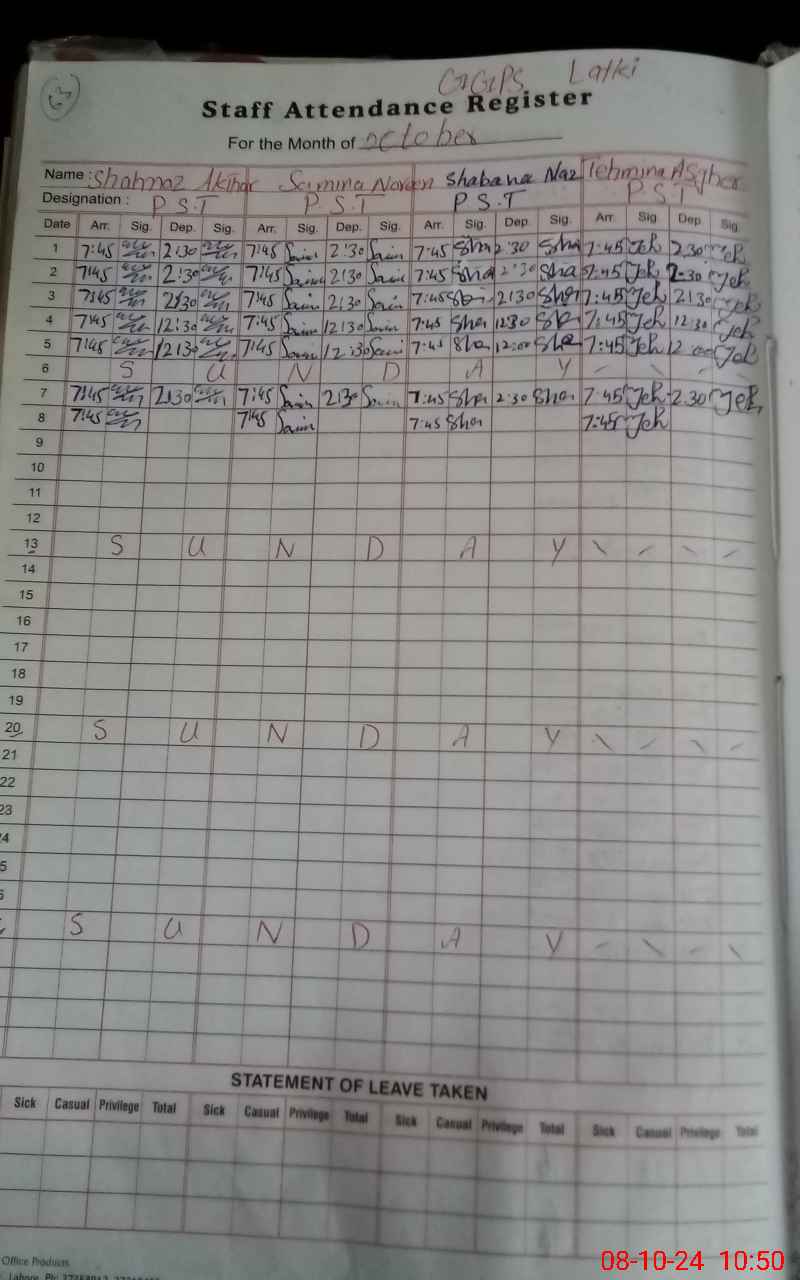 GGPS Latki
Staff Attendance Register
For the Month of october
Name : Shahnaz Akhtar Samina Noreen Shabana Naz Tehmina Asgher
Designation : P S.T P S.T P S.T P S T
Date Arr. Sig. Dep. Sig. Arr. Sig. Dep. Sig. Arr. Sig. Dep. Sig. Arr. Sig. Dep Sig.
1 7:45 2:30 7:45 Sain 2:30 Sain 7:45 Sha 2:30 Sha 7:45 Teh 2.30 Teh
2 7:45 2:30 7:45 Sain 2:30 Sain 7:45 Sha 2:30 Sha 7:45 Teh 2.30 Teh
3 7:45 2:30 7:45 Sain 2:30 Sain 7:45 Sha 2:30 Sha 7:45 Teh 2:30 Teh
4 7:45 12:30 7:45 Sain 12:30 Sain 7:45 Sha 12:30 Sha 7:45 Teh 12:30 Teh
5 7:45 12:30 7:45 Sain 12:30 Sain 7:45 Sha 12:00 Sha 7:45 Teh 12:00 Teh
6 S U N D A Y
7 7:45 2:30 7:45 Sain 2:30 Sain 7:45 Sha 2:30 Sha 7:45 Teh 2.30 Teh
8 7:45 7:45 Sain 7:45 Sha 7:45 Teh
9
10
11
12
13 S U N D A Y
14
15
16
17
18
19
20 S U N D A Y
21
22
23
4
5
S U N D A Y
STATEMENT OF LEAVE TAKEN
Sick Casual Privilege Total Sick Casual Privilege Total Sick Casual Privilege Total Sick Casual Privilege Total
Office Products
Lahore. Ph:
08-10-24 10:50